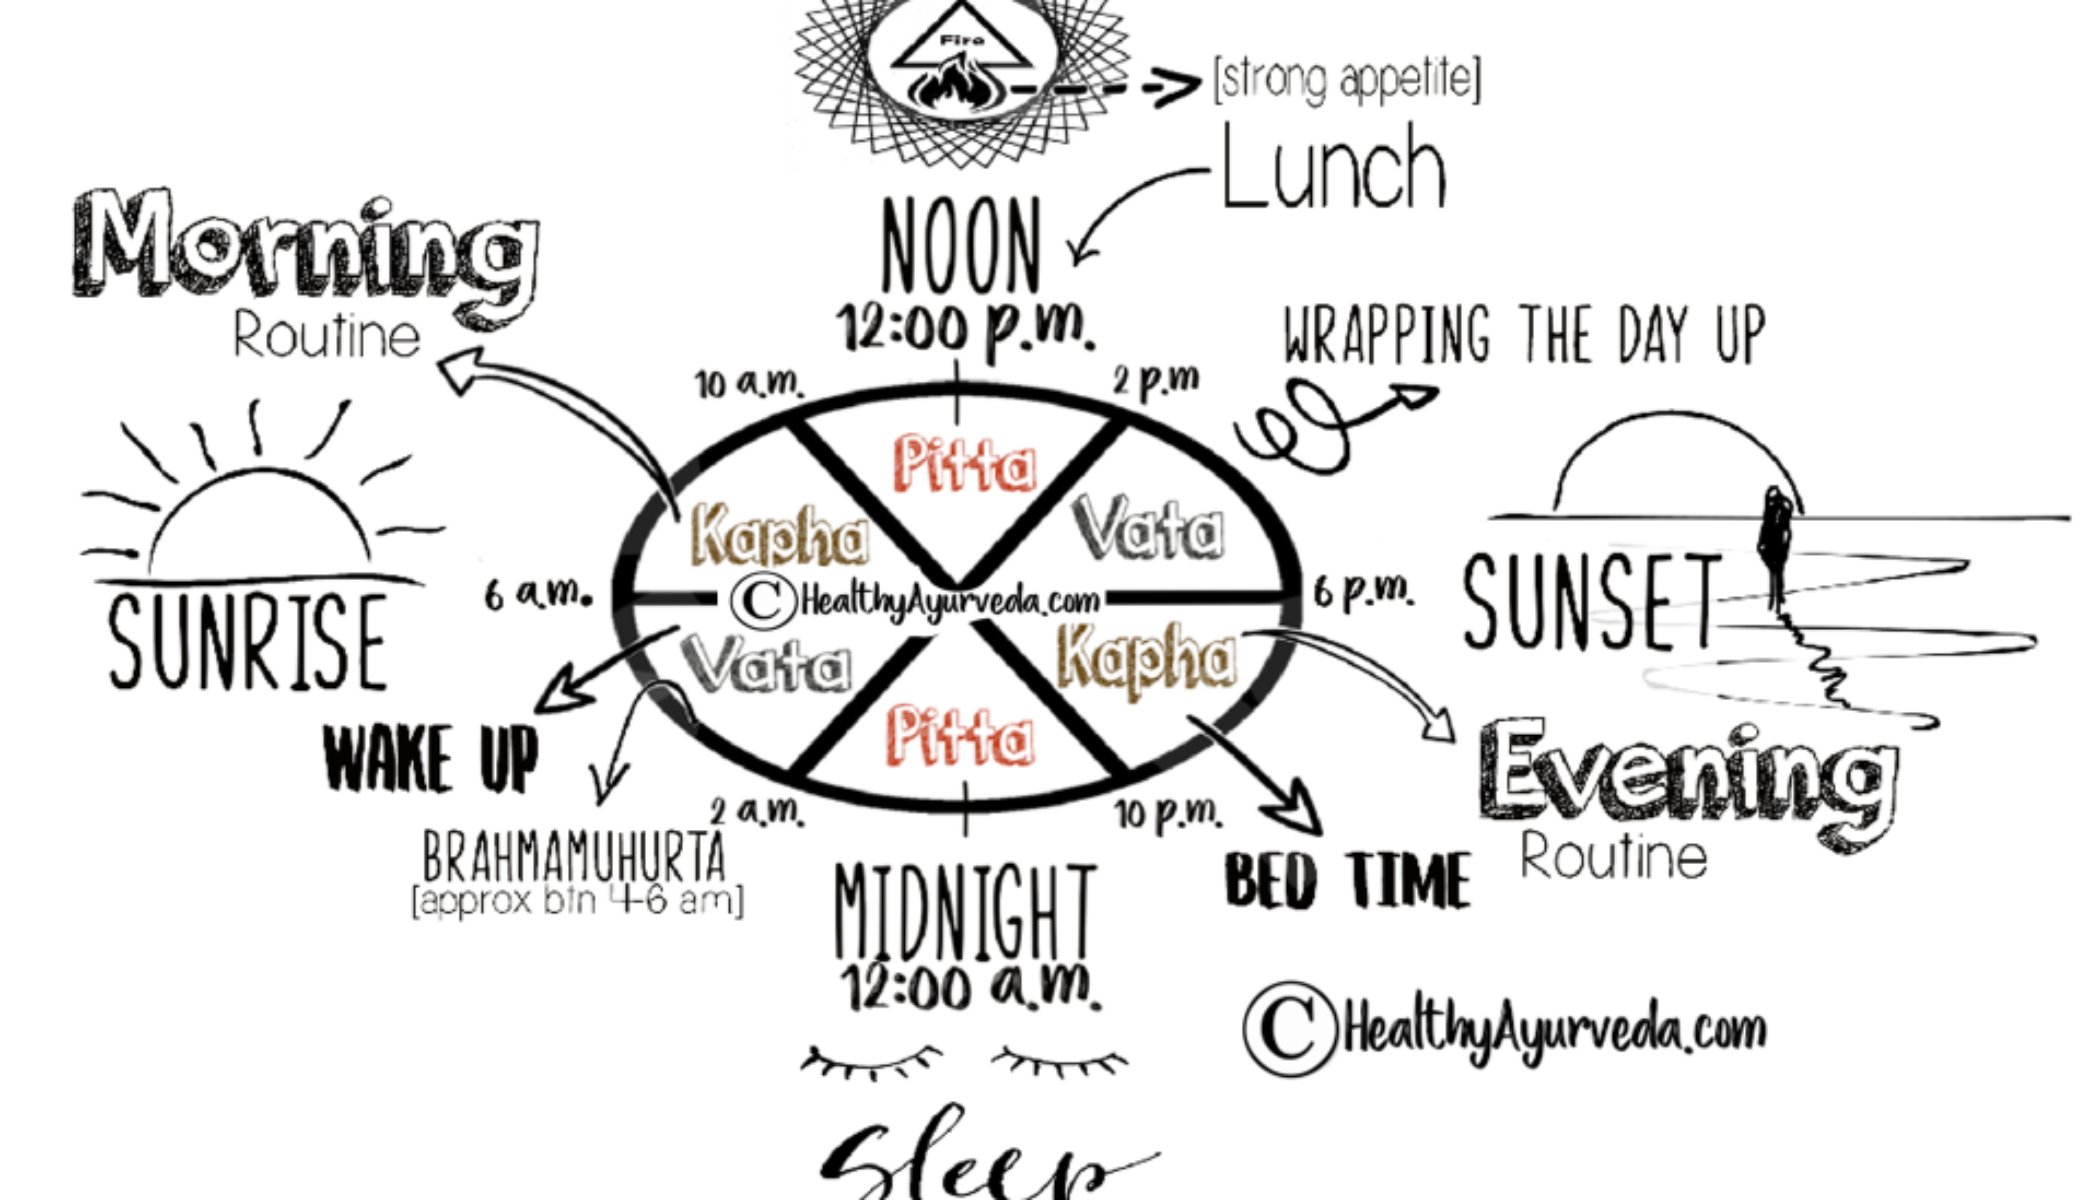 Fire
[strong appetite]
Lunch
NOON
12:00 p.m.
Morning
Routine
WRAPPING THE DAY UP
10 a.m.
2 p.m
Pitta
Kapha
Vata
SUNRISE
6 a.m.
©HealthyAyurveda.com
6 p.m.
SUNSET
Vata
Kapha
Pitta
WAKE UP
2 a.m.
10 p.m.
BRAHMAMUHURTA
[approx btn 4-6 am]
BED TIME
Evening
Routine
MIDNIGHT
12:00 a.m.
©HealthyAyurveda.com
Sleep